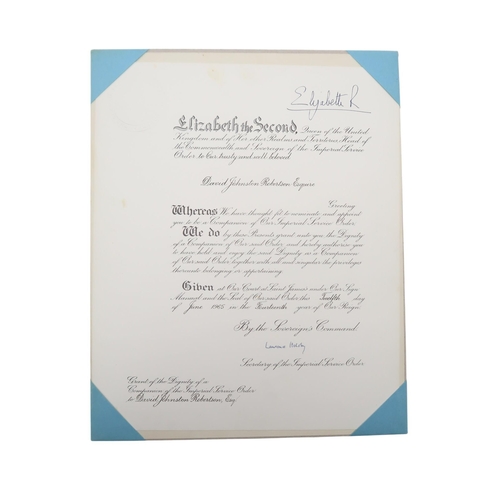 Elizabeth R
Elizabeth the Second, Queen of the United
Kingdom and of Her other Realms and Territories Head of
the Commonwealth and Sovereign of the Imperial Service
Order to Our trusty and well beloved
David Johnston Robertson Esquire
Greeting
Whereas We have thought fit to nominate and appoint
you to be a Companion of Our Imperial Service Order
We do by these Presents grant unto you the Dignity
of a Companion of Our said Order and hereby authorise you
to have hold and enjoy the said Dignity as a Companion
of Our said Order together with all and singular the privileges
thereunto belonging or appertaining
Given at Our Court at Saint James's under Our Sign
Manual and the Seal of Our said Order this Twelfth day
of June 1965 in the Fourteenth year of Our Reign
By the Sovereign's Command.
Secretary of the Imperial Service Order
Grant of the Dignity of a
Companion of the Imperial Service Order
to David Johnston Robertson, Esq